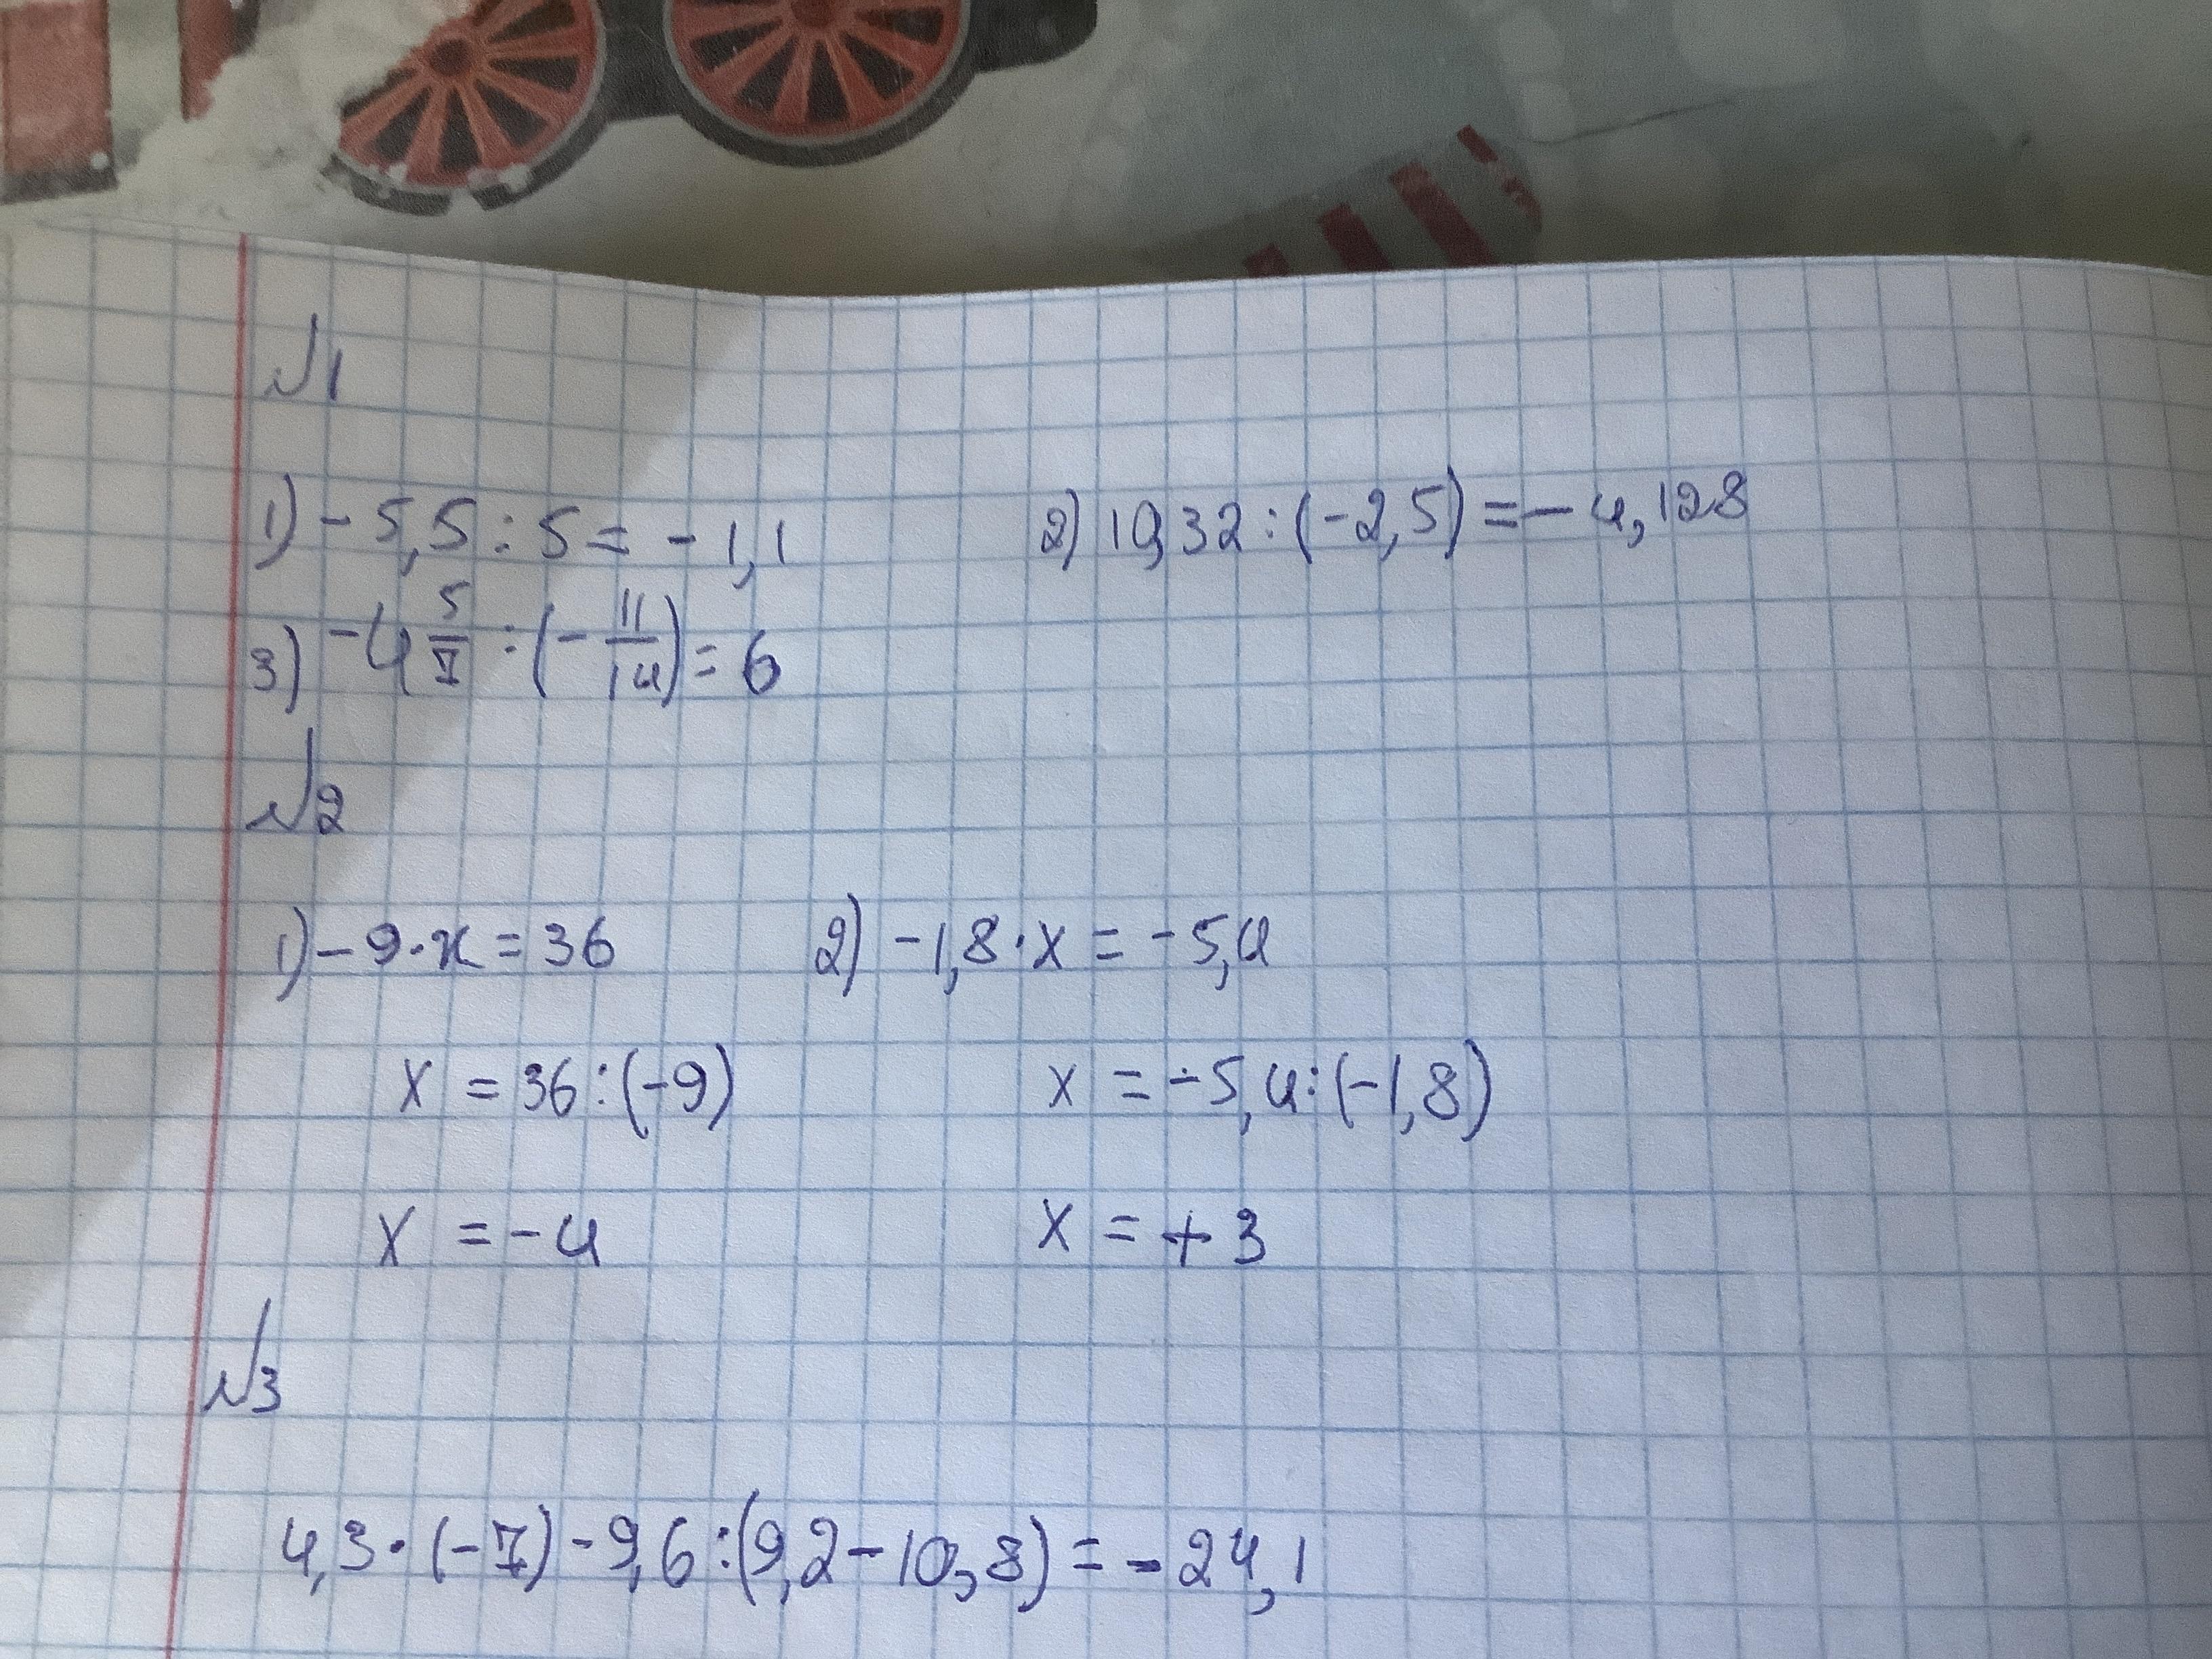 №1
1) -5,5:5= -1,1 2) 10,32:(-2,5)=-4,128
3) -4 5/7 : (- 11/14) = 6
№2
1) -9·x=36 2) -1,8·x = -5,4
x = 36:(-9) x = -5,4:(-1,8)
x = -4 x = +3
№3
4,3·(-7)-9,6:(9,2-10,8) = -24,1